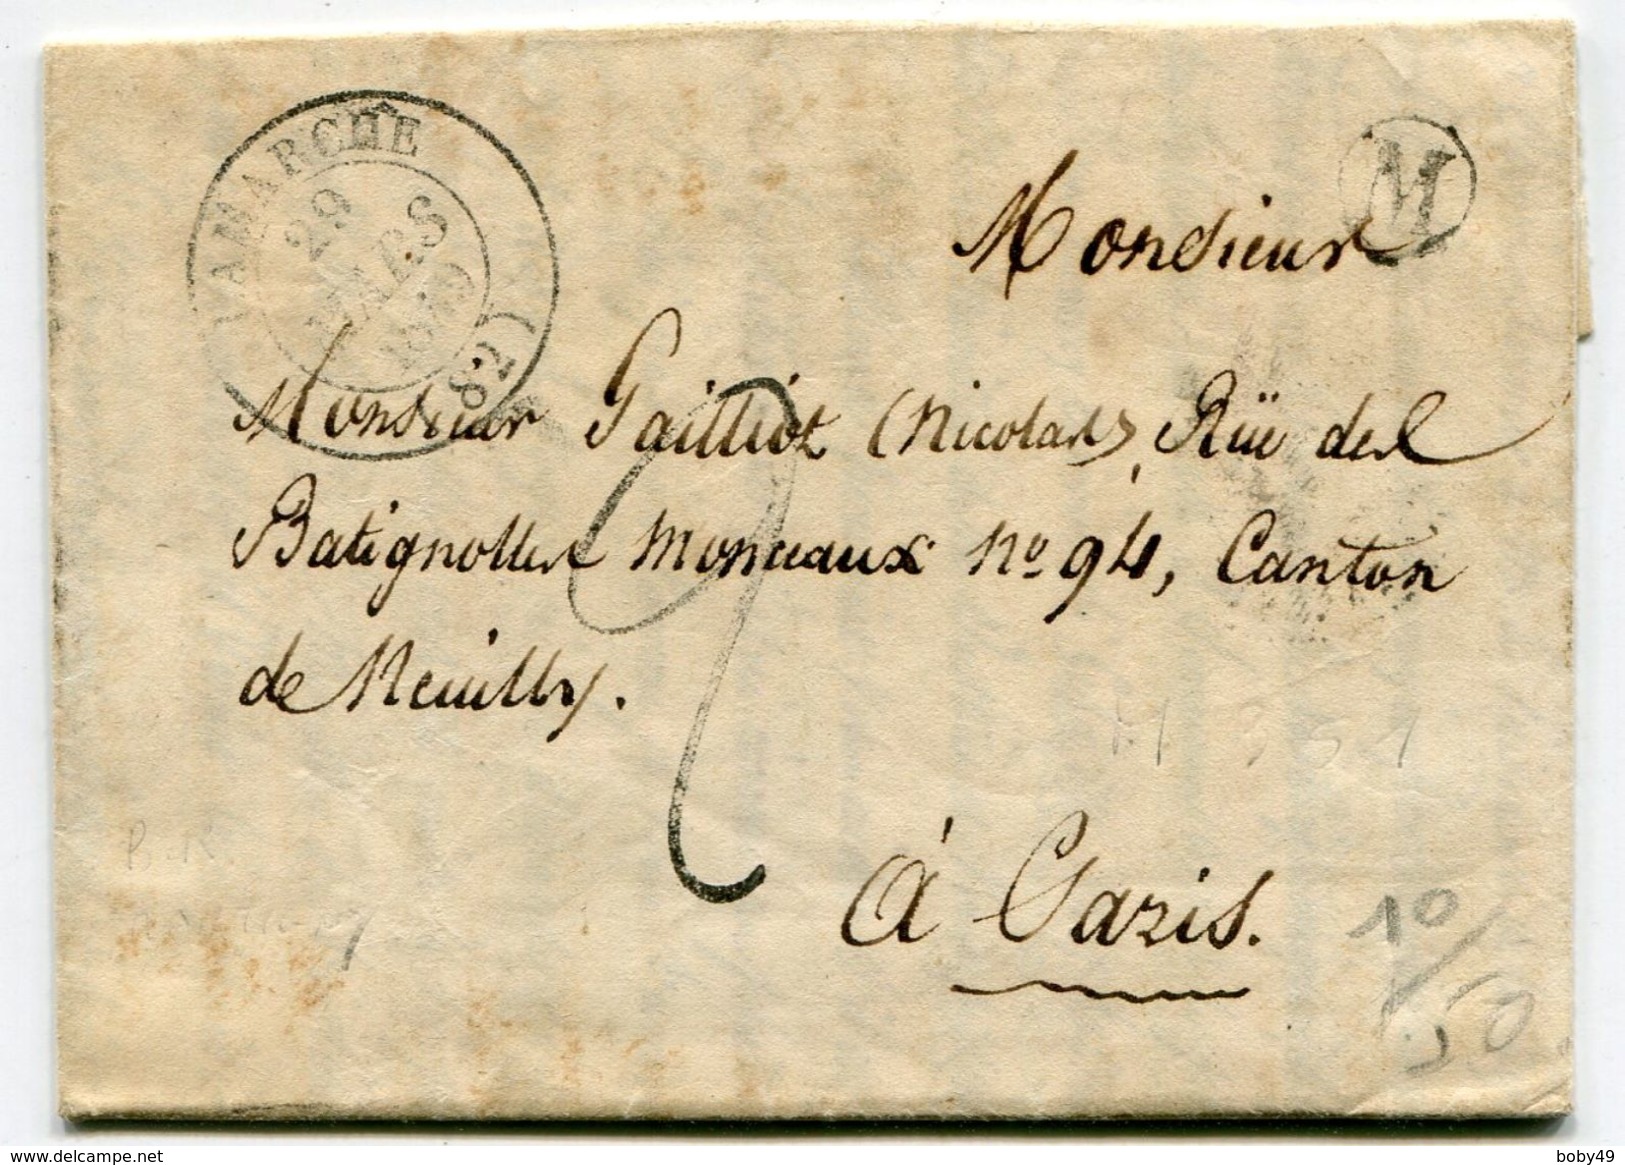 LAMARCHE
29
MARS
(82)
M
Monsieur
Monsieur Gailliot (Nicolas), Rüe des
Batignolles Monceaux No 94, Canton
de Neuilly.
à Paris.
10
50
www.delcampe.net
boby49